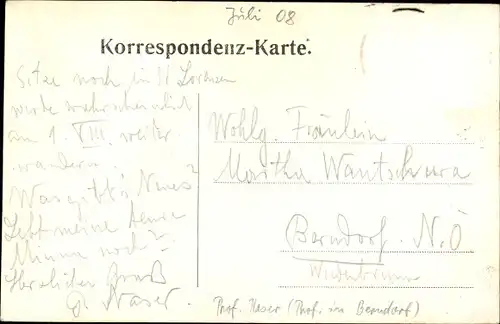 Juli 08
Korrespondenz-Karte.
Sitze noch in St Lorenzen
werde wahrscheinlich
am 1. VIII. weiter
wandern.
Was gibt's Neues?
Lebt meine
Minna noch?
Herzlichen Gruß
Naser.
Wohlg. Fräulein
Martha Wantschura
Berndorf. N.Ö
Prof. Naser (Prof. in Berndorf)